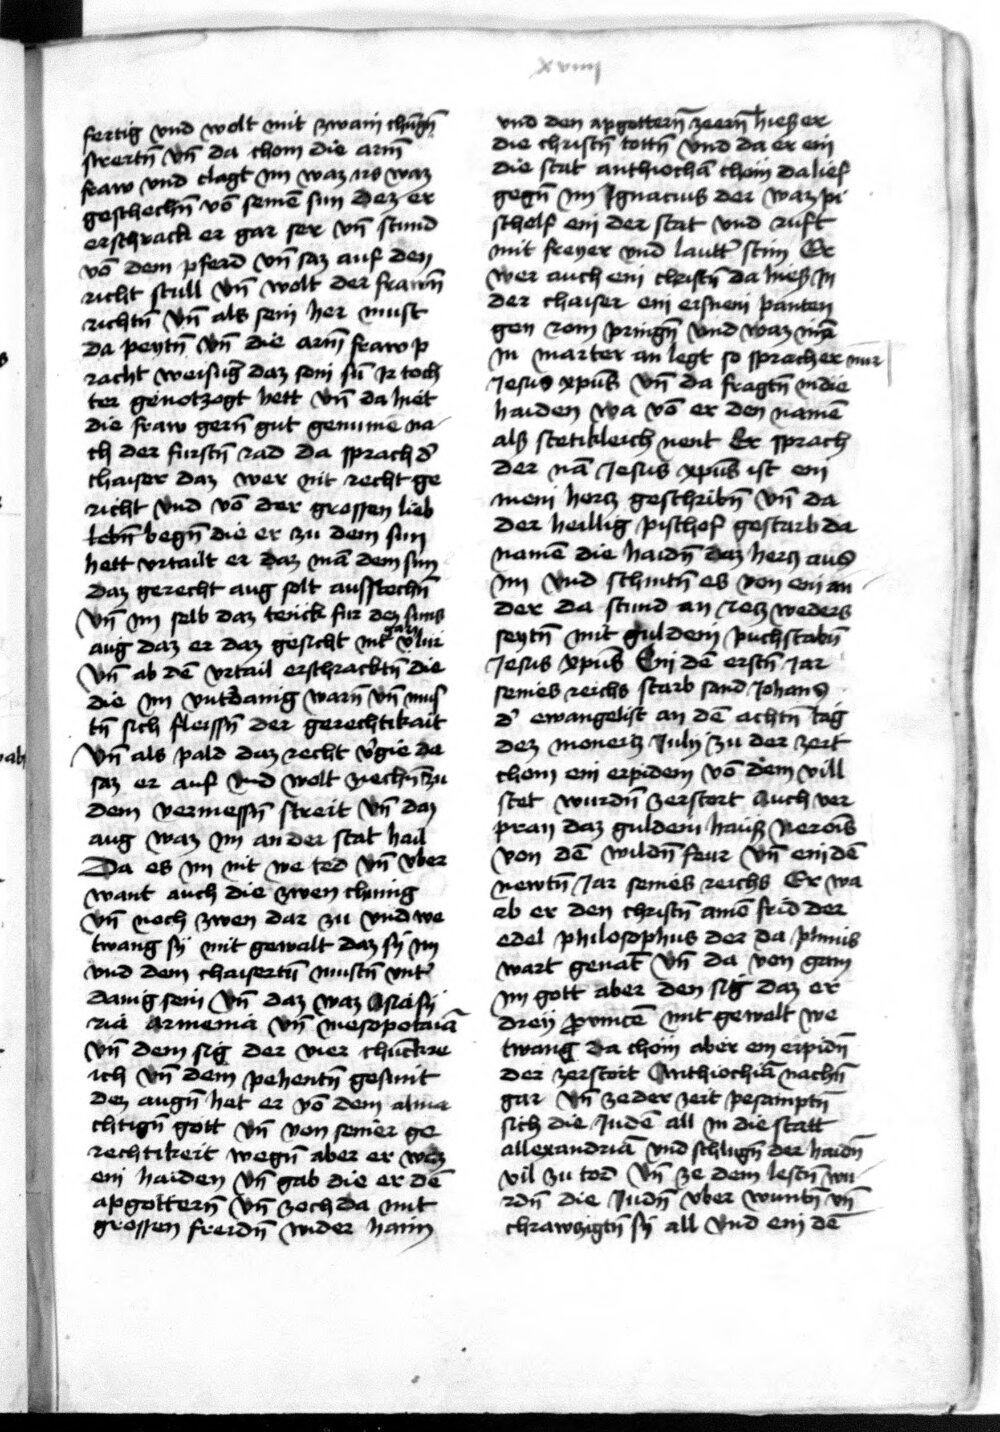 xviiij
fertig vnd wolt mit zwain chũgñ
streitñ vñ da chom die arm̃
fraw vnd clagt im waz irs waz
geschechñ võ seinẽ sun Dez er
erschrack er gar ser vñ stund
võ dem pferd vñ saz auf den
richt stull vñ wolt der frawñ
richtñ vñ als sein her must
da peytñ vñ die arm̃ fraw p
racht weisũg daz sein sũ ir toch
ter genotzogt hett vñ da hiet
die fraw gerñ gut genumẽ na
ch der furstñ rad da sprach d'
chaiser daz wer nit recht ge
richt vnd võ der grossen lieb
lebñ begñ die er zu dem sun
hett vrtailt er daz mã dem sun
daz gerecht aug solt ausstechñ
vñ im selb daz tenck fur dez suns
aug daz er daz gesicht nit gar v'lur
vñ ab dẽ vrtail erschracktñ die
die im vntdanig warñ vñ mus
tñ sich fleissñ der gerechtikait
vñ als pald daz recht v'gie da
saz er auf vnd wolt rechñ zu
dem vermessñ streit vñ daz
aug waz im an der stat hail
Da es im nit we ted vñ vber
want auch die zwen chunig
vñ noch zwen dar zu vnd we
twang sy mit gewalt daz sy im
vnd dem chaisertũ mustñ vnt'
danig sein vñ daz waz Asia sy
ria armenia vñ mesopotaniã
vñ dem sig der vier chuckre
ich vñ dem pehentñ gesunt
dez augñ het er võ dem alma
chtigñ gott vñ von seiner ge
rechtikeit wegñ aber er waz
ein haiden vñ gab die er dẽ
apgotterñ vñ zoch da mit
grossen freidñ wider haim
vnd den apgotterñ zeerñ hiesz er
die christñ tottñ vnd da er ein
die stat anthiochã chom da lief
gegñ im Ignacius der waz pi
schelf ein der stat vnd ruft
mit freyer vnd lautt' stim Er
wer auch ein christñ da hiesz in
der chaiser ein eisnein panten
gen rom pringñ vnd waz mã
in marter an legt so sprach er nur
Jesus xpũs vñ da fragtñ in die
haiden wa võ er den namẽ
alsz stetikleich nent Er sprach
der nã Jesus xpũs ist ein
mein hercz geschribñ vñ da
der heillig pischof gestarb da
namẽ die haidñ daz hercz aus
im vnd schnitñ es von ein an
der da stund an iecz weders
seytñ mit guldein puchstabñ
Jesus xpũs Ein dẽ erstñ Jar
seines reichs starb sand Johans
d' ewangelist an dẽ achtñ tag
dez moneitz July zu der zeit
chom ein erpidem võ dem vill
stet wurdñ zerstort Auch ver
pran daz guldein hausz Neroñs
von dẽ wildñ feur vñ ein dẽ
newtñ Jar seines reichs Er wa
rb er den christñ ainẽ frid der
edel philosophus der da plinius
wart genãt vñ da von gan
im gott aber den sig daz er
dreij provincẽ mit gewalt we
twang da chom aber ein erpidñ
der zerstort Anthiochiã nachñ
gar vñ ze der zeit pesamptñ
sich die Judẽ all in die statt
allexandriã vnd schlugñ der haidñ
vil zu tod vñ ze dem lestñ wu
rdñ die Judñ vber wuntñ vñ
chrawczigtñ sy all vnd ein dẽ